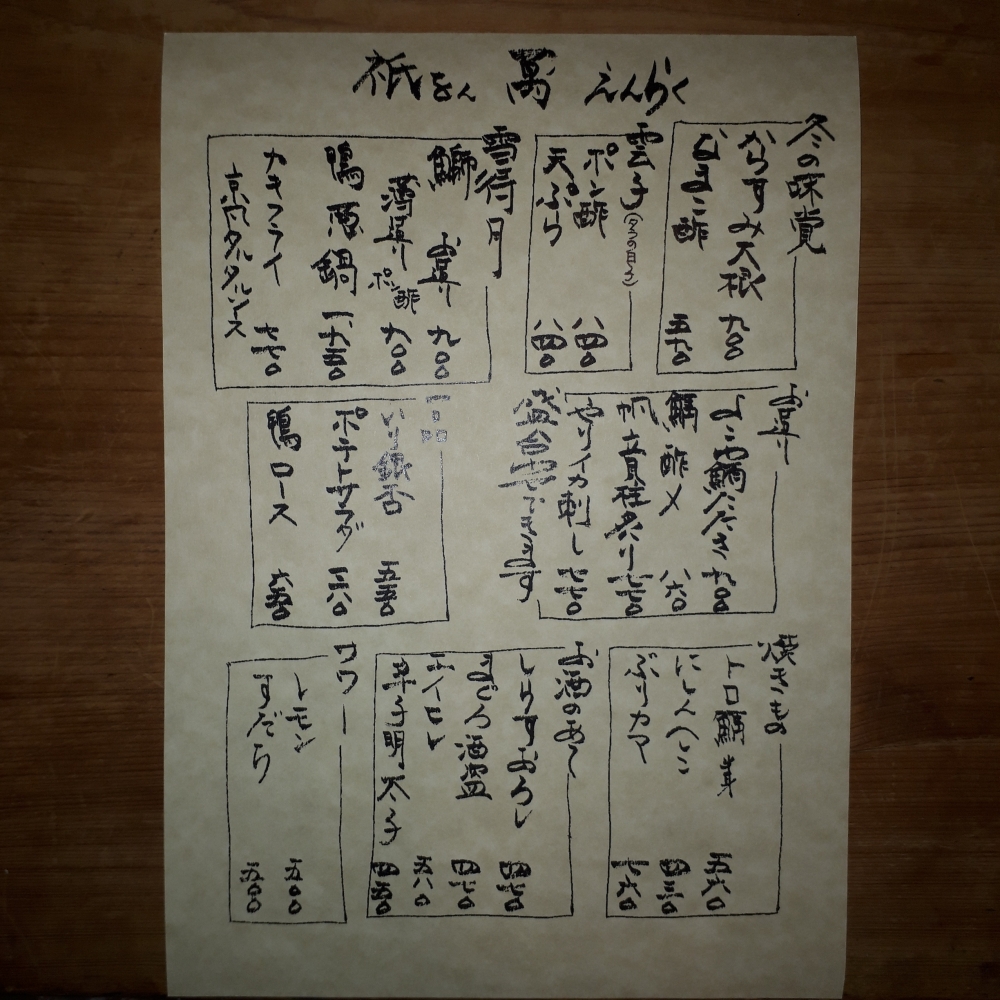 祇をん 萬 えんらく
冬の味覚
からすみ大根 九〇〇
なまこ酢 五七〇
雲子(タラの白子)
ポン酢 八四〇
天ぷら 八四〇
雪待月
鰤 お造り 九〇〇
薄造りポン酢 九〇〇
鴨 鍋 一六五〇
カキフライ 七七〇
京風タルタルソース
お造り
よこわ鯛たたき 九〇〇
鯖 酢〆 八六〇
帆立貝柱炙り 七七〇
やりイカ刺し 七七〇
盛合せできます
一品
いり銀杏 五五〇
ポテトサラダ 三六〇
鴨ロース 六五〇
焼きもの
トロ鯖 五六〇
にしんへしこ 四三〇
ぶりカマ 七六〇
お酒のあて
しらすおろし 四七〇
まぐろ酒盗 四七〇
エイヒレ 五八〇
辛子明太子 四五〇
サワー
レモン 五〇〇
すだち 五〇〇